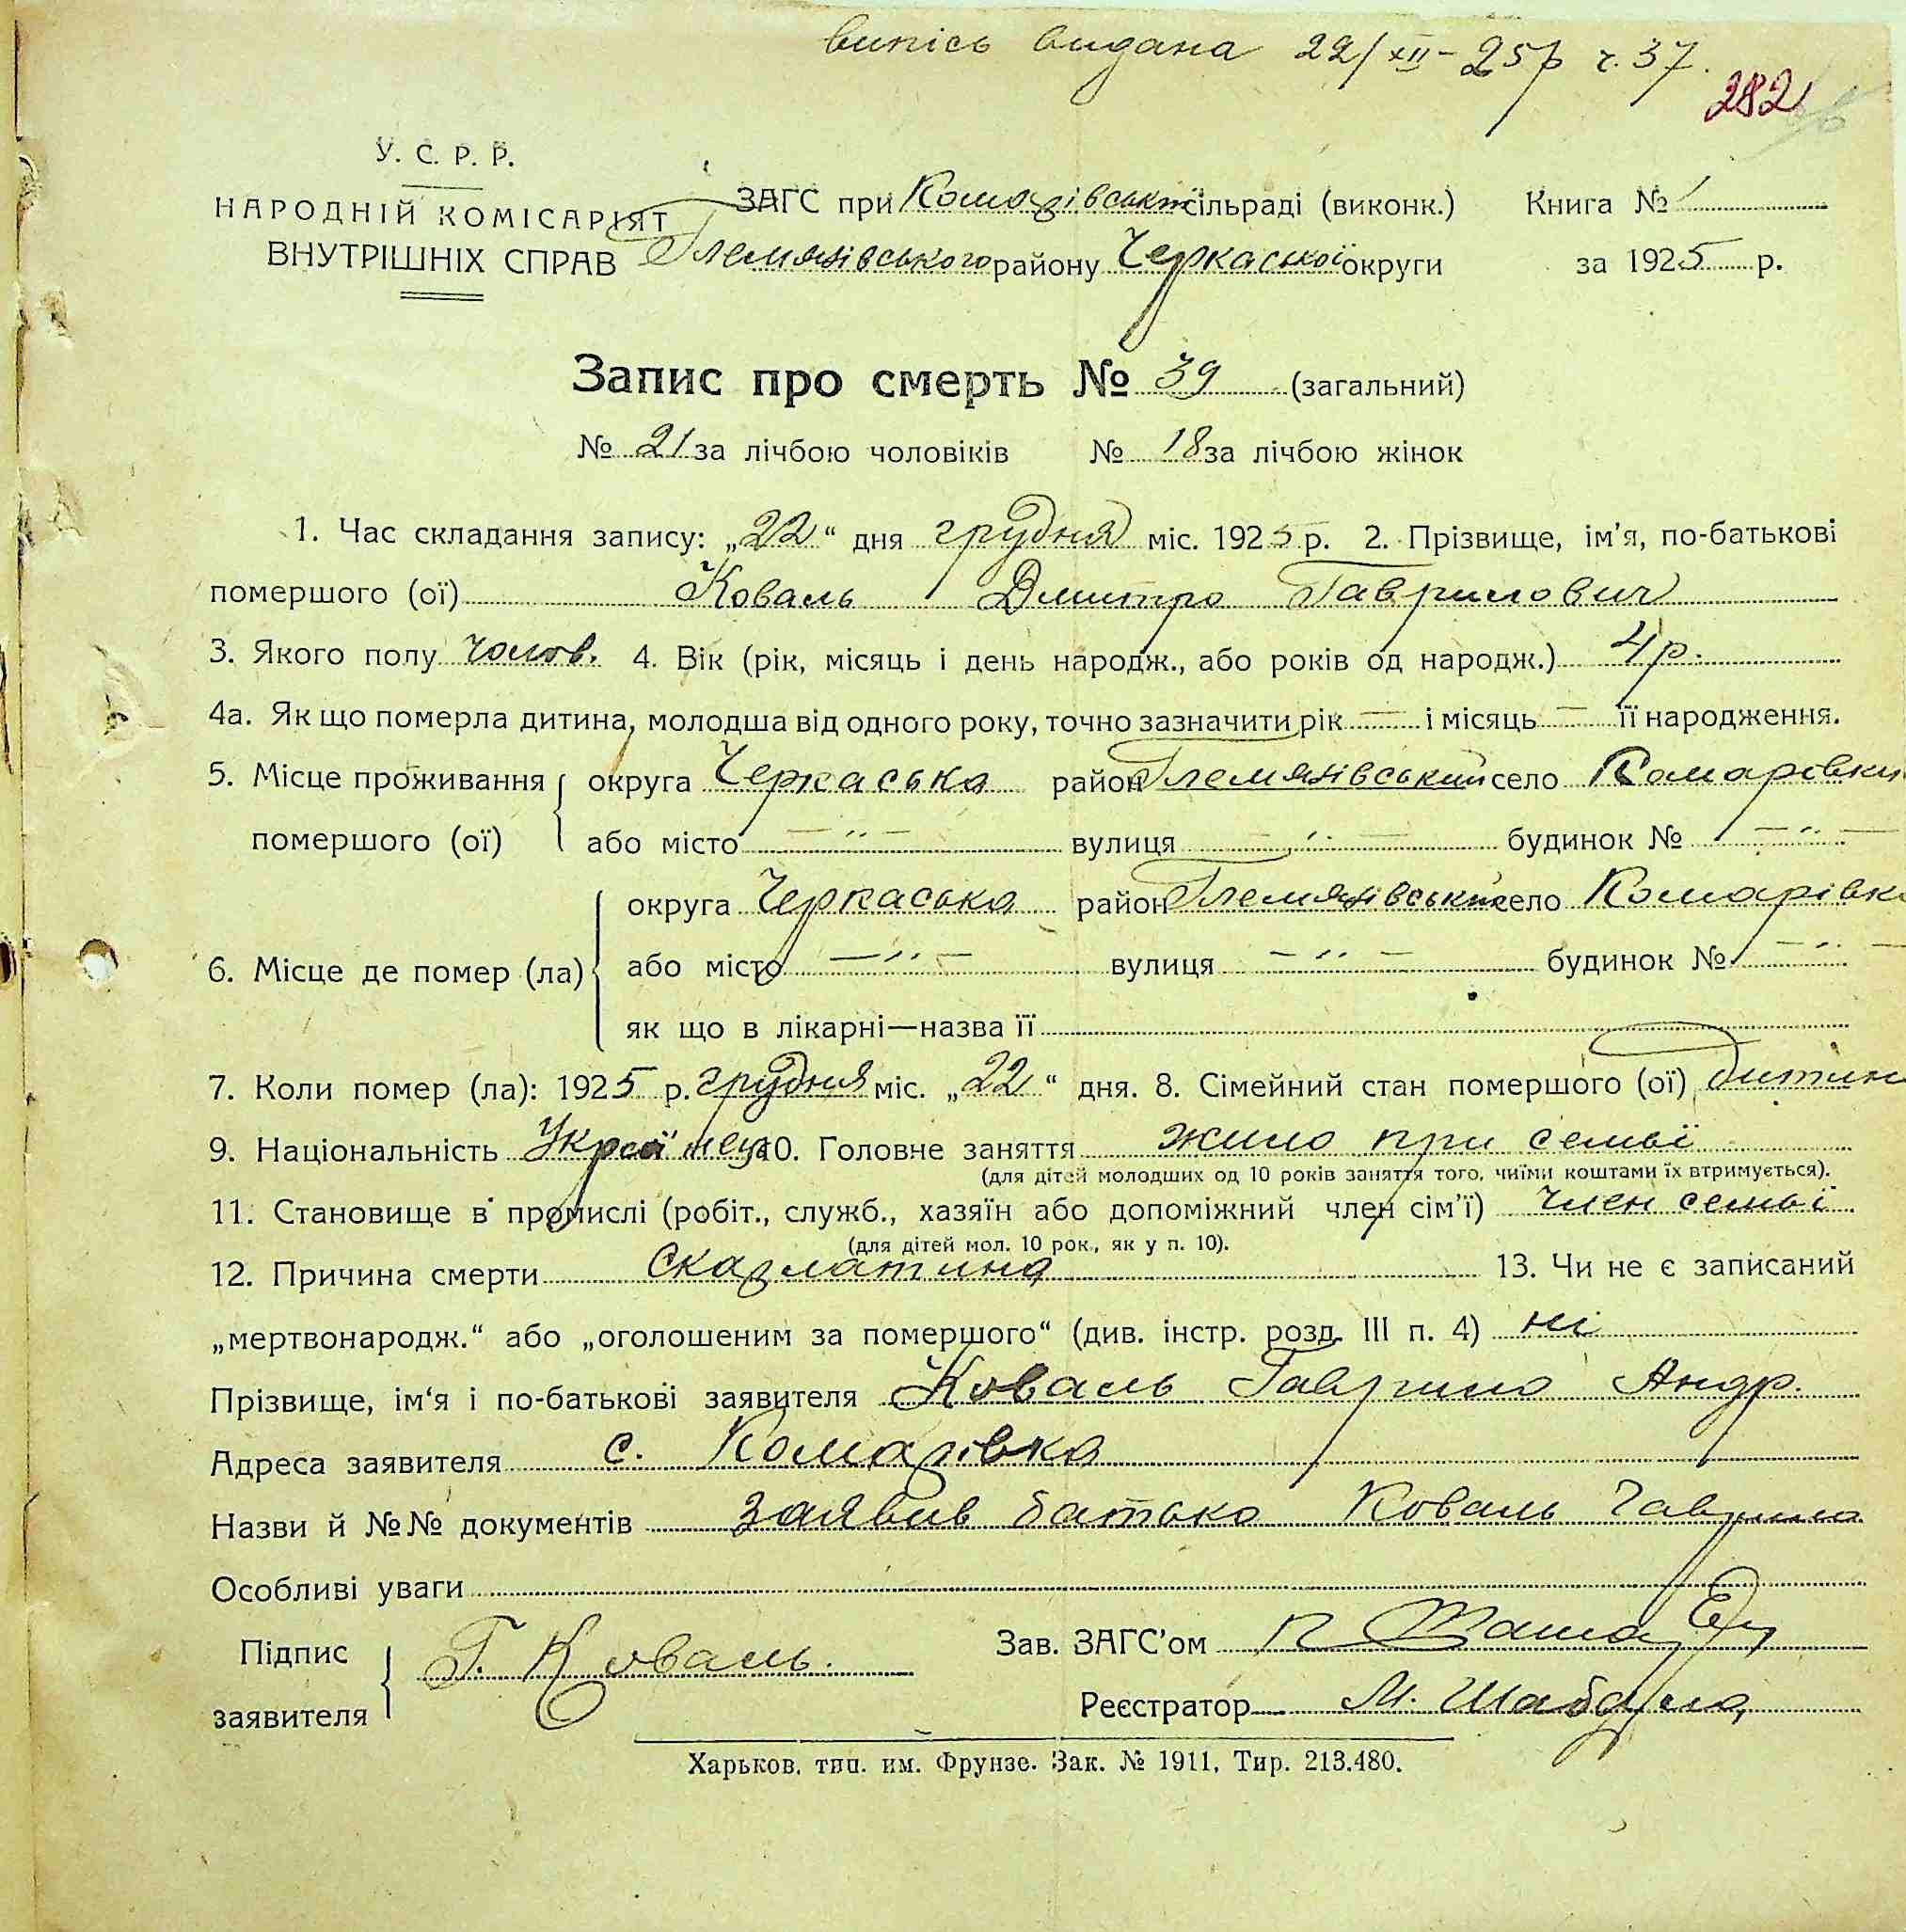 випісь видана 22/XII-25р ч. 37.
282
У. С. Р. Р.
НАРОДНІЙ КОМІСАРІЯТ
ВНУТРІШНІХ СПРАВ
ЗАГС при Комарівській сільраді (виконк.) Книга № 1
Гельмязівського району Черкаської округи за 1925 р.
Запис про смерть № 39 (загальний)
№ 21 за лічбою чоловіків № 18 за лічбою жінок
1. Час складання запису: „22“ дня грудня міс. 1925 р. 2. Прізвище, ім'я, по-батькові
помершого (ої) Коваль Дмитро Гаврилович
3. Якого полу чолов. 4. Вік (рік, місяць і день народж., або років од народж.) 4 р.
4а. Як що померла дитина, молодша від одного року, точно зазначити рік — і місяць — її народження.
5. Місце проживання помершого (ої) округа Черкаська район село Комарівки
або місто — " — вулиця — " — будинок № — " —
6. Місце де помер (ла) округа Черкаська район село Комарівка
або місто — " — вулиця — " — будинок № — " —
як що в лікарні—назва її
7. Коли помер (ла): 1925 р. грудня міс. „22“ дня. 8. Сімейний стан помершого (ої) дитина
9. Національність Украї нец 10. Головне заняття жило при семьї
(для дітей молодших од 10 років заняття того, чиїми коштами їх втримується).
11. Становище в промислі (робіт., служб., хазяїн або допоміжний член сім'ї) член семьї
(для дітей мол. 10 рок., як у п. 10).
12. Причина смерти скарлатина 13. Чи не є записаний
„мертвонародж.“ або „оголошеним за помершого“ (див. інстр. розд. III п. 4) ні
Прізвище, ім‘я і по-батькові заявителя Коваль Гаврило Андр.
Адреса заявителя с. Комарівка
Назви й №№ документів заявив батько Коваль Гаврило
Особливі уваги
Підпис заявителя Г. Коваль. Зав. ЗАГС'ом
Реєстратор М. Шабдула
Харьков, тип. им. Фрунзе. Зак. № 1911, Тир. 213.480.